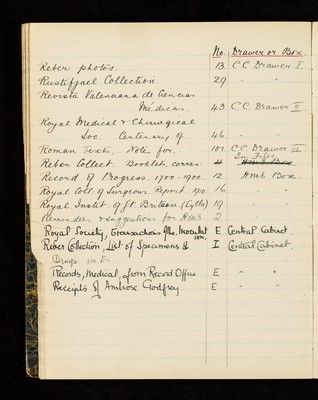 No. Drawer or Box.
Reber photos. 13. C.C Drawer I.
Rustafjael Collection. 29. " "
Revista Valenciana de Ciencias
Médicas. 43. C.C Drawer II
Royal Medical & Chirurgical
Soc. Centenary of 46. " "
Roman Texts, Note for. 101. C.C Drawer III
In Files
Reber Collect. Booklets, corres:
Record of Progress. 1700-1900. 12 H.M.S Box.
Royal Coll. of Surgeons. Report 1910. 16 " "
Royal Instit. of Gt Britain (Cycle) 19 " "
Reminders & suggestions for H.M.S 2 " "
Royal Society, Transactions of the, Inoculat E Central Cabinet.
ion.
Reber Collection, List of Specimens & I Central Cabinet.
Drugs in the.
Records, Medical, from Record Office E " "
Receipts of Ambrose Godfrey. E " "